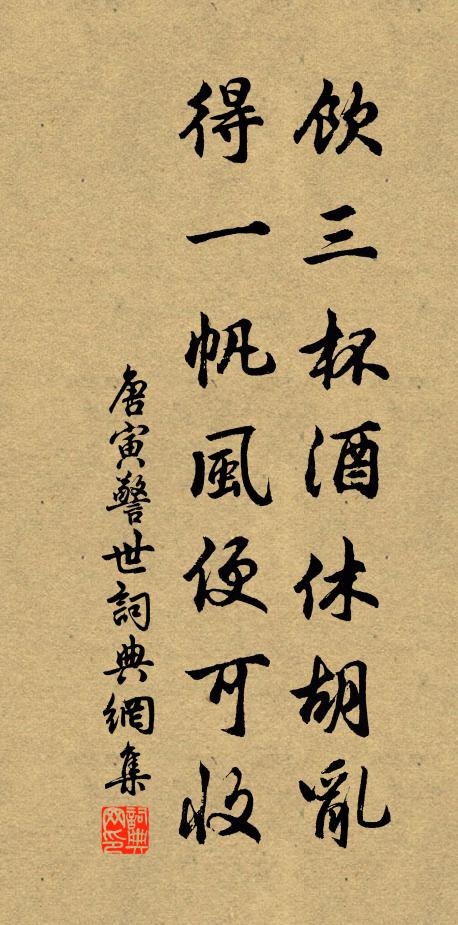 飲三杯酒休胡亂
得一帆風便可收
唐寅警世詞典網集
詞典网印